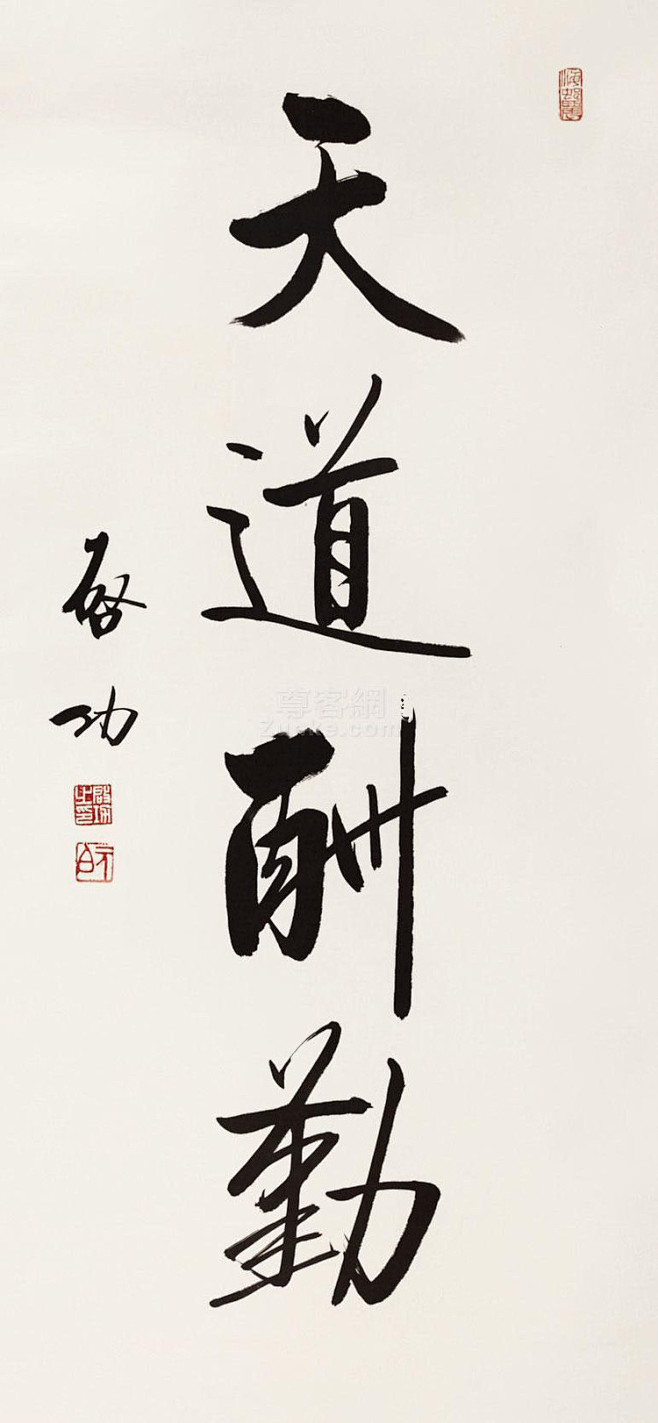 天道酬勤
启功
尊客網
Zunke.com